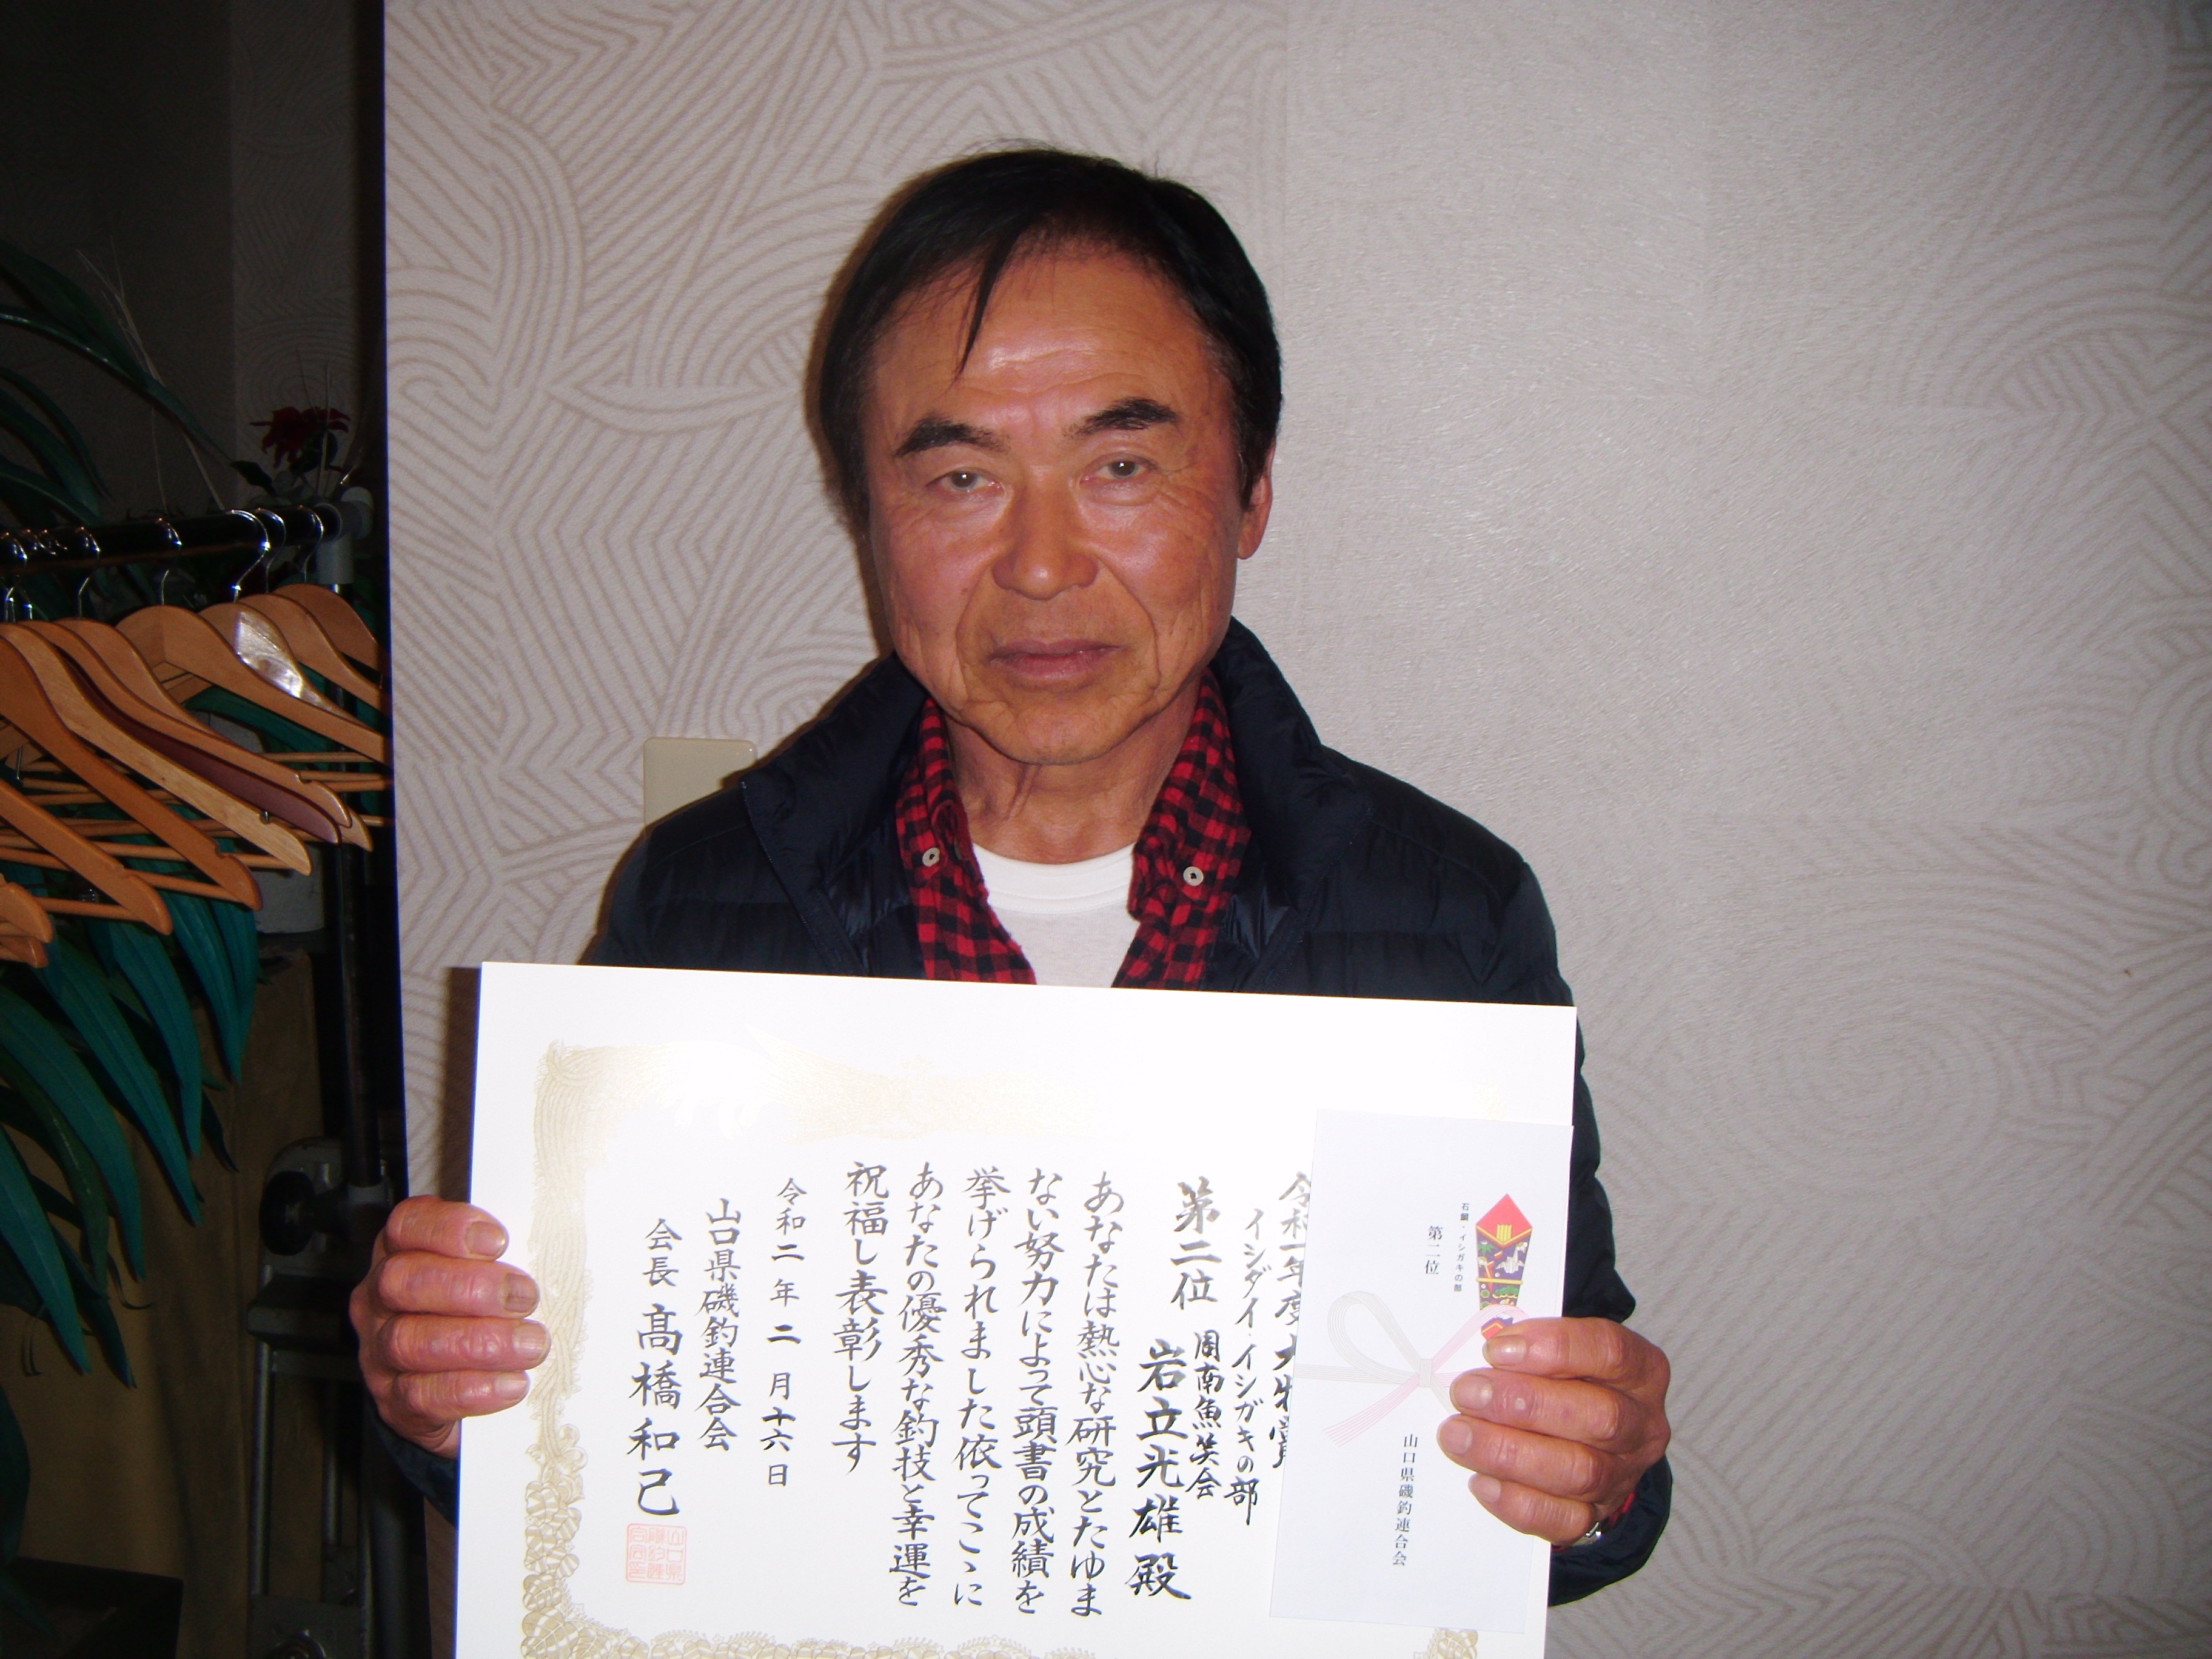 令和一年度大物賞
イシダイ・イシガキの部
第二位 周南魚笑会
岩立光雄殿
あなたは熱心な研究とたゆま
ない努力によって頭書の成績を
挙げられました依ってここに
あなたの優秀な釣技と幸運を
祝福し表彰します
令和二年二月十六日
山口県磯釣連合会
会長 髙橋和己
石鯛・イシガキの部
第二位
山口県磯釣連合会